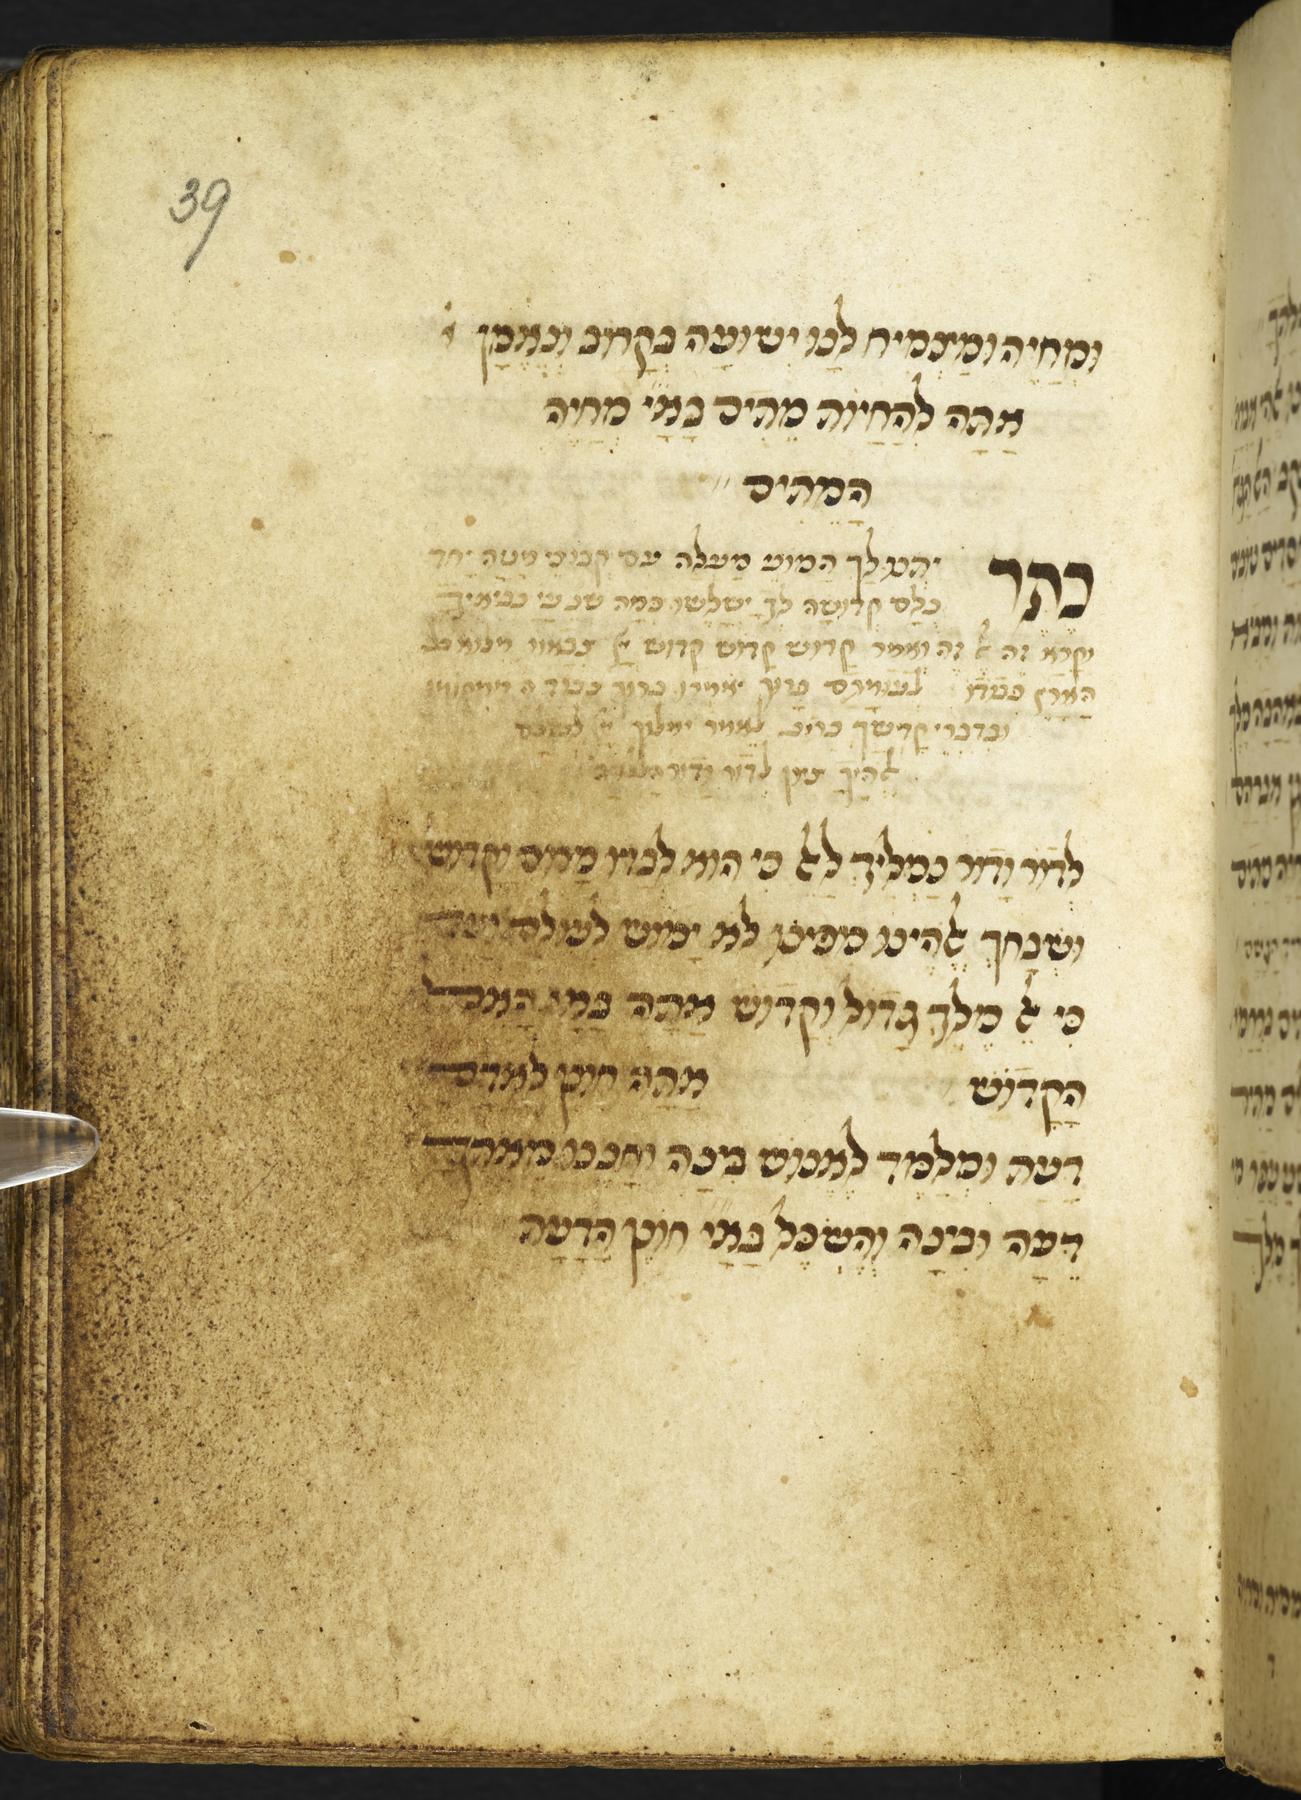 39
וּמְחַיֶה וּמַצְמִיחַ לָנוּ יְשׁוּעָה בְּקָרוֹב וְנֶאֱמָן
אַתָּה לְהַחֲיוֹת מֵתִים בָּאַ״יי מְחַיֵה
הַמֵתִים
כתר יתנו לך המוני מעלה עם קבוצי מטה יחד
כלם קדושה לך ישלשו כמה שנ׳ על נביאיך
וקרא זה אל זה ואמר קדוש קדוש קדוש צבאות מלוא כל
הארץ כבודו לעומתם יאמרו ברוך כבוד ממקומו
ובדברי קדשך כתוב לאמר ימלוך לעולם
אלהיך ציון לדור ודור
לדור ודור המליכו לאל כי הוא לבדו מרום וקדוש
ושבחך אלהינו מפינו לא ימוש לעולם ועד
כי אל מלך גדול וקדוש אתה באיי האל
הקדוש אתה חונן לאדם
דעת ומלמד לאנוש בינה וחננו מאתך
דעה ובינה והשכל באיי חונן הדעת